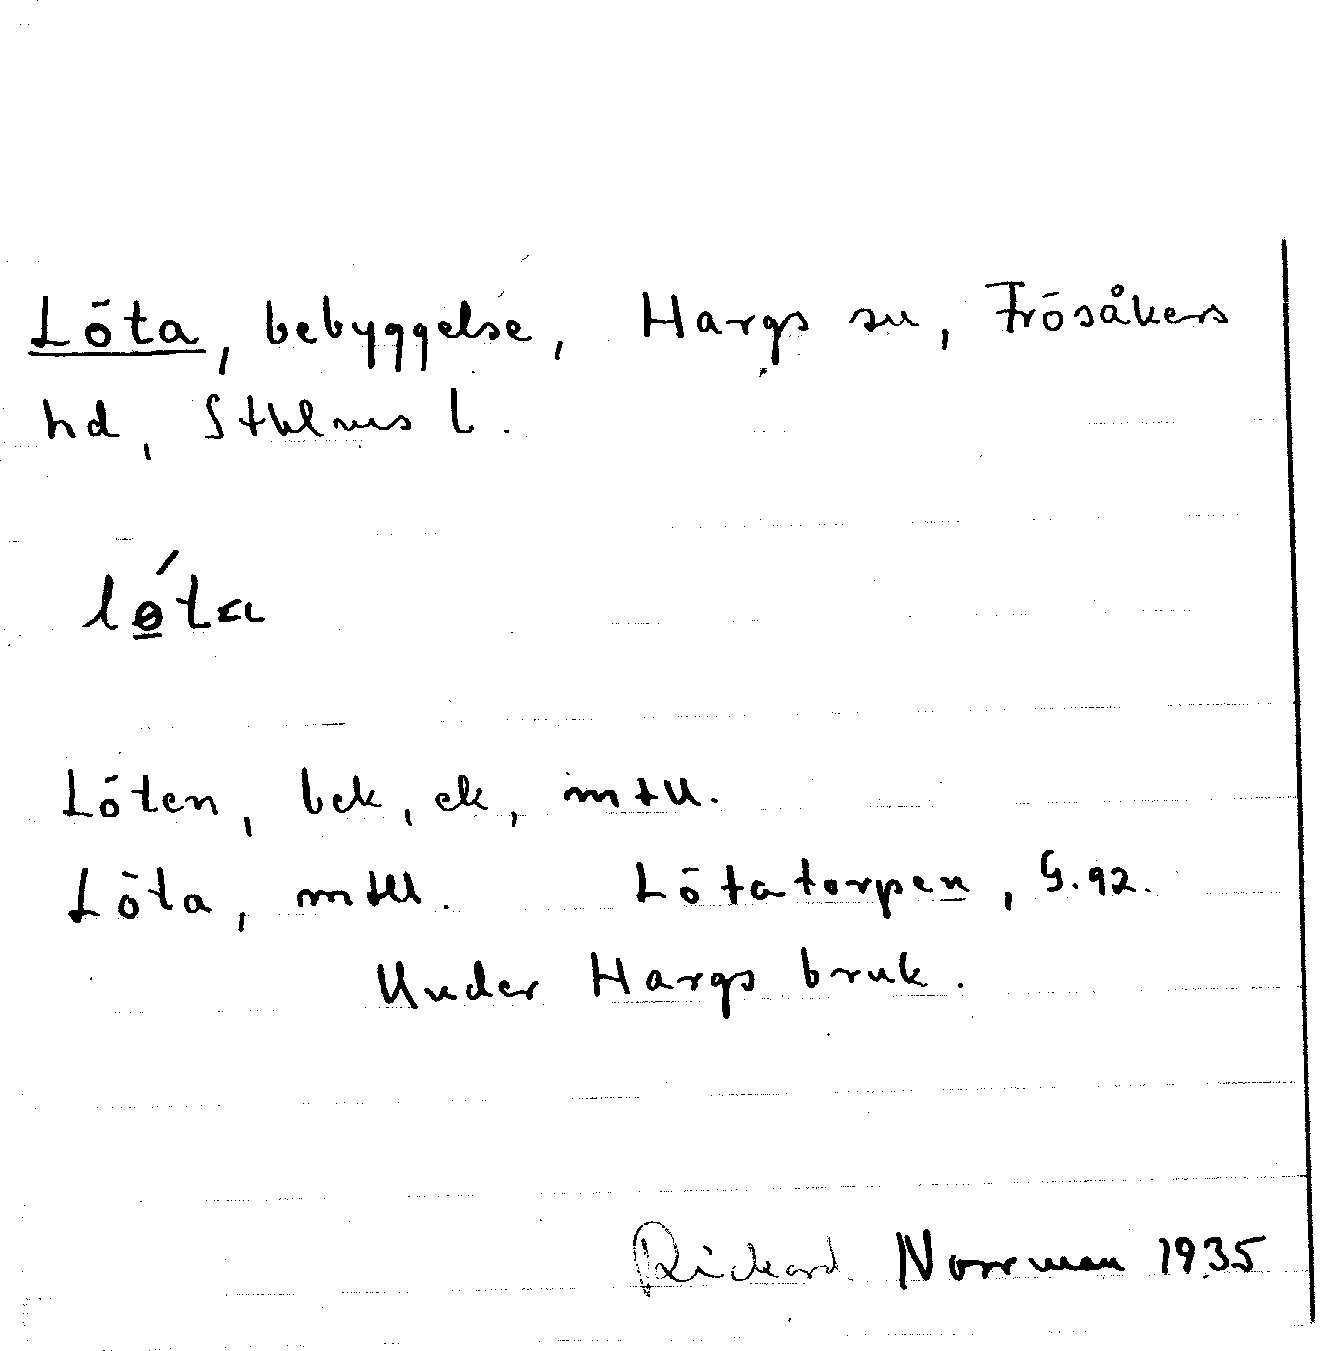 Löta, bebyggelse, Hargs sn, Frösåkers
hd, Sthlms l.
lǿta
Löten, bek, ek, mtll.
Löta, mtll. Lötatorpen, G.92.
Under Hargs bruk.
Rickard Norrman 1935